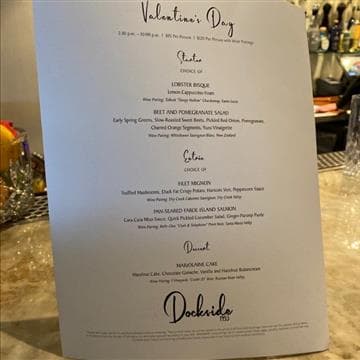 Valentine's Day
2:30 p.m. - 10:00 p.m. | $95 Per Person | $120 Per Person with Wine Pairings
Starter
CHOICE OF
LOBSTER BISQUE
Lemon Cappuccino Foam
BEET AND POMEGRANATE SALAD
Early Spring Greens, Slow-Roasted Sweet Beets, Pickled Red Onion, Pomegranate,
Charred Orange Segments, Yuzu Vinaigrette
Wine Pairing: Whitehaven Sauvignon Blanc, New Zealand
Entrée
CHOICE OF
FILET MIGNON
Truffled Mushrooms, Duck Fat Crispy Potato, Haricots Vert, Peppercorn Sauce
Wine Pairing: Dry Creek Cabernet Sauvignon, Dry Creek Valley
PAN-SEARED FAROE ISLAND SALMON
Cara Cara Miso Sauce, Quick Pickled Cucumber Salad, Ginger-Parsnip Purée
Wine Pairing: Belle Glos "Clark & Telephone" Pinot Noir, Santa Maria Valley
Dessert
MARJOLAINE CAKE
Hazelnut Cake, Chocolate Ganache, Vanilla and Hazelnut Buttercream
Dockside
1953